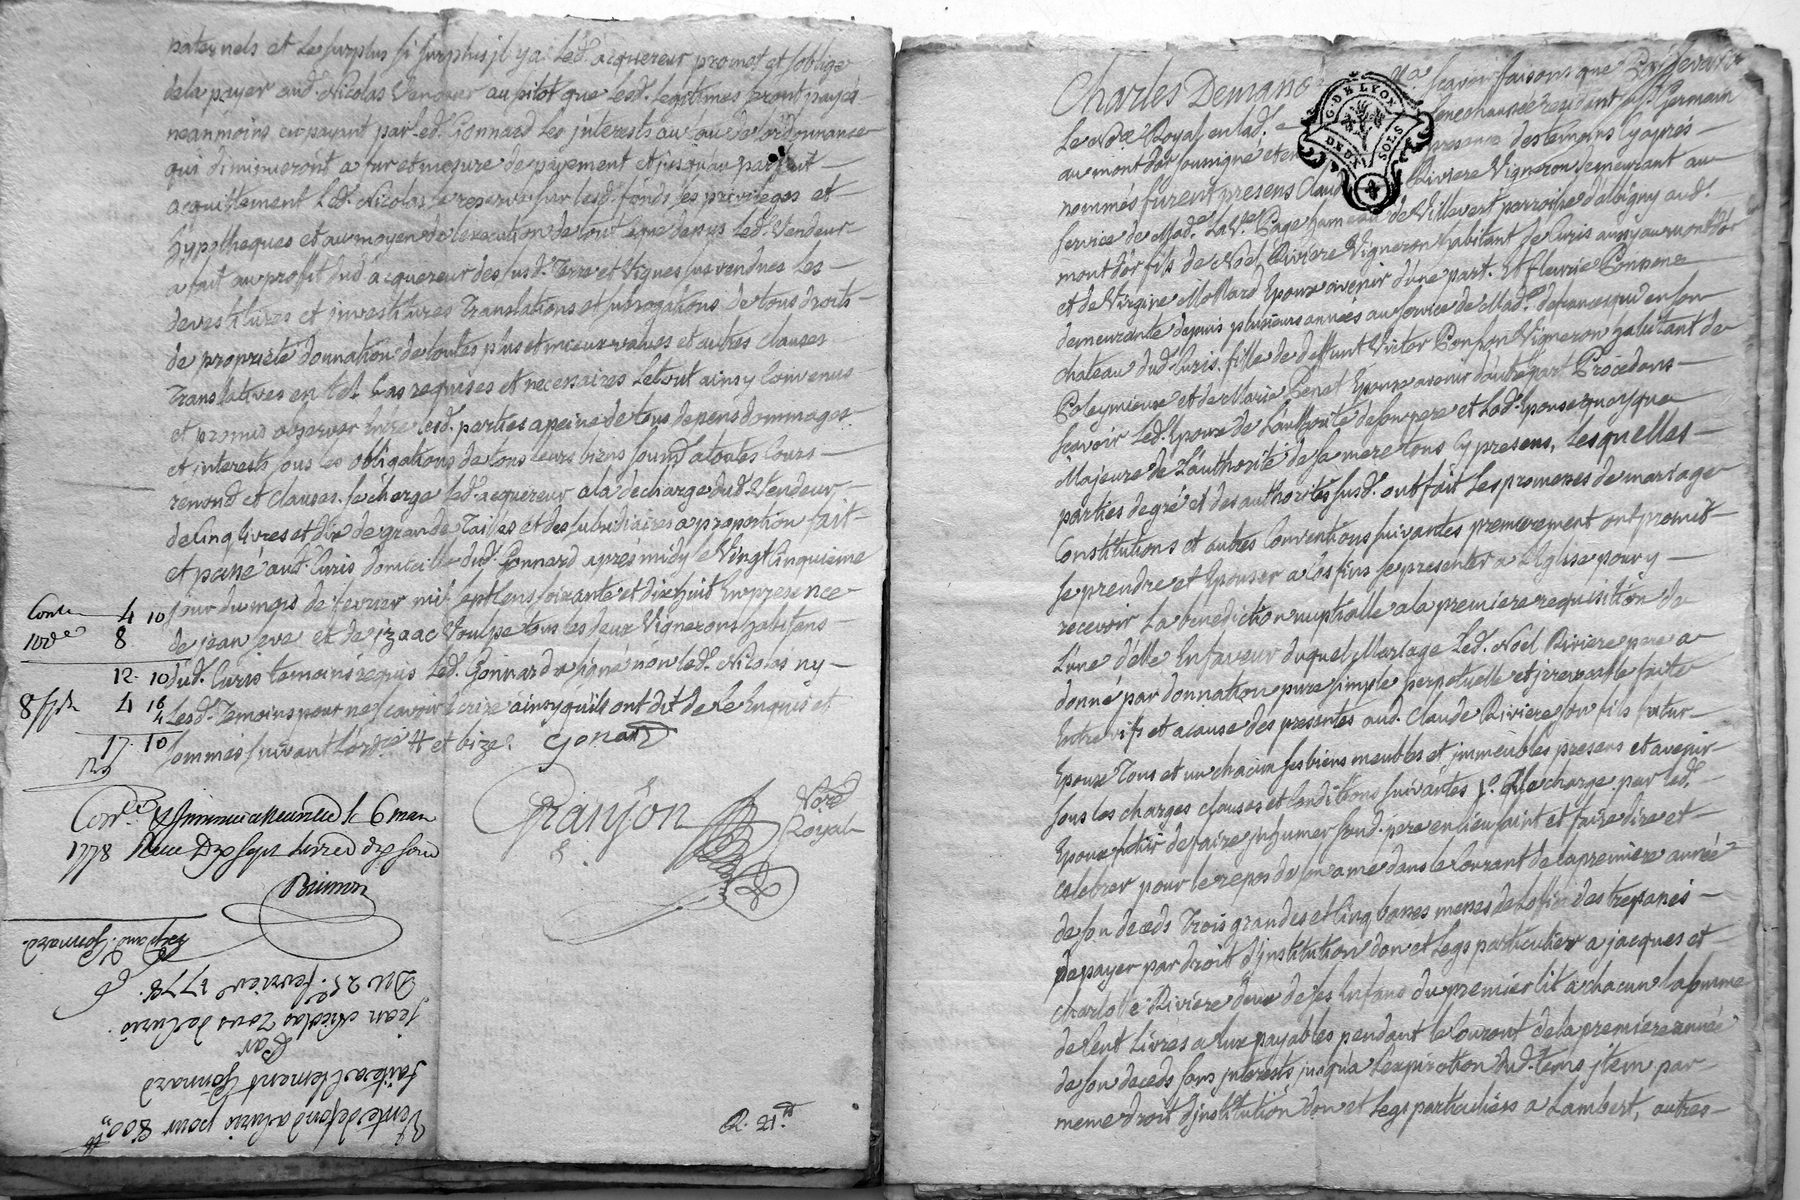 paternels et le surplus si surplus jl ya led. acquereur promet et soblige
de la payer aud. Nicolas Vendeur au sitot que lesd. legitimes seront payés
neanmoins en payant par led. Gonnard les jnterests au taux de lordonnance
qui dimineront a fur et mesure de payement et jusquau parfait
acquittement Led. Nicolas se reserve sur lesd. fonds ses privileges et
hypotheques et au moyen de lexecution de tout ce que dessus led. Vendeur
a fait au profit dud. acquereur des susd. Terre et Vignes sus vendues les
devestitures et jnvestitures Translations et subrogations de tous droits
de proprieté donnation de toutes plus et mieux values et autres clauses
Translatives en tel cas requises et necessaires le tout ainsy Convenus
et promis observer entre lesd. parties a peine de tous depens dommages
et jnterests sous les obligations de tous leurs biens soumd. a toutes Cours
renond. et clauses. se charge led. acquereur a la decharge dud. Vendeur
de Cinq livres et dix de grande Tailles et des subsidiaires a proportion fait
et passé aud. Curis domicille dud. Gonnard aprés midy le Vingt Cinquieme
jour du mois de fevrier mil sept Cens soixante et dix huit En presence
de jean eve et de jzaac Voulpe tous les deux Vignerons habitans
dud. Curis temoins requis Led. Gonnard a signé non led. Nicolas ny
Lesd. Temoins pour ne scavoir Ecrire ainsy quils ont dit de Ce Enquis et
sommés suivant Lordce. et bize. Gonard
Conte 4 10
100e 8
12. 10
4 16
4
17. 10
Granjon Nore Royal
le 6 mars
1778 Recu Dix sept livres dix sous
Brimon
Vente de fond a Curis pour 800 ₶
faite a Clement Gonnard
Par
jean Nicolas Tous de Curis.
Du 25e. fevrier 1778.
Exp. aud. Gonnard.
R. 21.₶
Charles Demano
Scavoir faisons que Par devant
Le Nore Royal en lad. Senechaussée residant a St. Germain
au mont dor soussigné et en presence des temoins Cy aprés
nommés furent presens Claude Riviere Vigneron demeurant au
service de Made. La Ve. Page hameau de Villevert parroisse dalbigny aud.
mont dor fils de Noel Riviere Vigneron habitant de Curis aussy au mont dor
et de Virgine Mollard Epoux avenir dune part. Et fleurie Ponson
demeurante depuis plusieurs années au service de Made. defrancesqui en son
chateau dud. Curis, fille de deffunt Victor Ponson Vigneron habitant de
Poleymieux et de Marie Penet Epouse avenir dautre part Procedans
scavoir led. Epoux de lauthorité de son pere et lad. Epouse quoyque
Majeure de Lauthorité de sa mere tous Cy presens, Lesquelles
parties de gré et des authorités susd. ont fait les promesses de mariage
Constitutions et autres Conventions suivantes premierement ont promit
se prendre et Epouser a Ces fins se presenter a lEglise pour y
recevoir La benediction nuptialle a la premiere requisition de
Lune delle En faveur duquel Mariage Led. Noel Riviere pere a
donné par donnation pure simple perpetuelle et jrrevocable faite
Entre vifs et a cause des presentes aud. Claude Riviere son fils futur
Epoux Tous et un chacun ses biens meubles et jmmeubles presens et avenir
sous les charges clauses et Conditions suivantes 1.° a la charge par led.
Epoux futur de faire jnhumer sond. pere en lieu saint et faire dire et
celebrer pour le repos de son ame dans le Courant de la premiere année
de son deceds Trois grandes et Cinq basses messes de loffice des trepassés
de payer par droit djnstitution don et legs particulier a jacques et
charlotte Riviere deux de ses Enfans du premier lit a chacun la somme
de Cent Livres a Eux payables pendant le Courant de la premiere année
de son deceds sans jnterests jusqua lexpiration dud. tems jtem par
meme droit djnstitution don et legs particuliers a Lambert, autres
G. DE LYON
DEUX SOLS